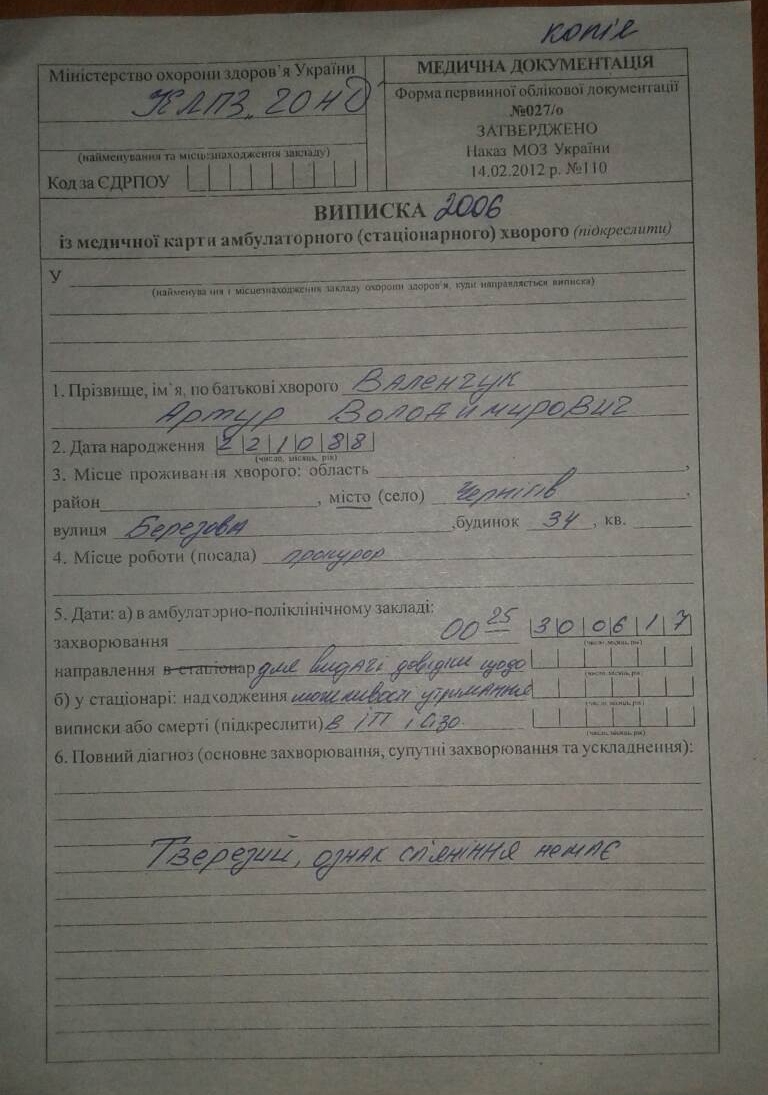 копія
Міністерство охорони здоров'я України
КЛПЗ „ЧОНД
(найменування та місцезнаходження закладу)
Код за ЄДРПОУ
МЕДИЧНА ДОКУМЕНТАЦІЯ
Форма первинної облікової документації
№027/о
ЗАТВЕРДЖЕНО
Наказ МОЗ України
14.02.2012 р. №110
ВИПИСКА 2006
із медичної карти амбулаторного (стаціонарного) хворого (підкреслити)
У
(найменування і місцезнаходження закладу охорони здоров'я, куди направляється виписка)
1. Прізвище, ім`я, по батькові хворого Валенчук
Артур Володимирович
2. Дата народження 2 2 1 0 8 8
(число, місяць, рік)
3. Місце проживання хворого: область ,
район , місто (село) Чернігів ,
вулиця Березова ,будинок 34 , кв.
4. Місце роботи (посада) прокурор
5. Дати: а) в амбулаторно-поліклінічному закладі:
захворювання 00 25 3 0 0 6 1 7
(число, місяць, рік)
направлення в стаціонар для видачі довідки щодо
(число, місяць, рік)
б) у стаціонарі: надходження можливості утримання
(число, місяць, рік)
виписки або смерті (підкреслити) в ІТТ і Сізо.
(число, місяць, рік)
6. Повний діагноз (основне захворювання, супутні захворювання та ускладнення):
Тверезий, ознак сп'яніння немає